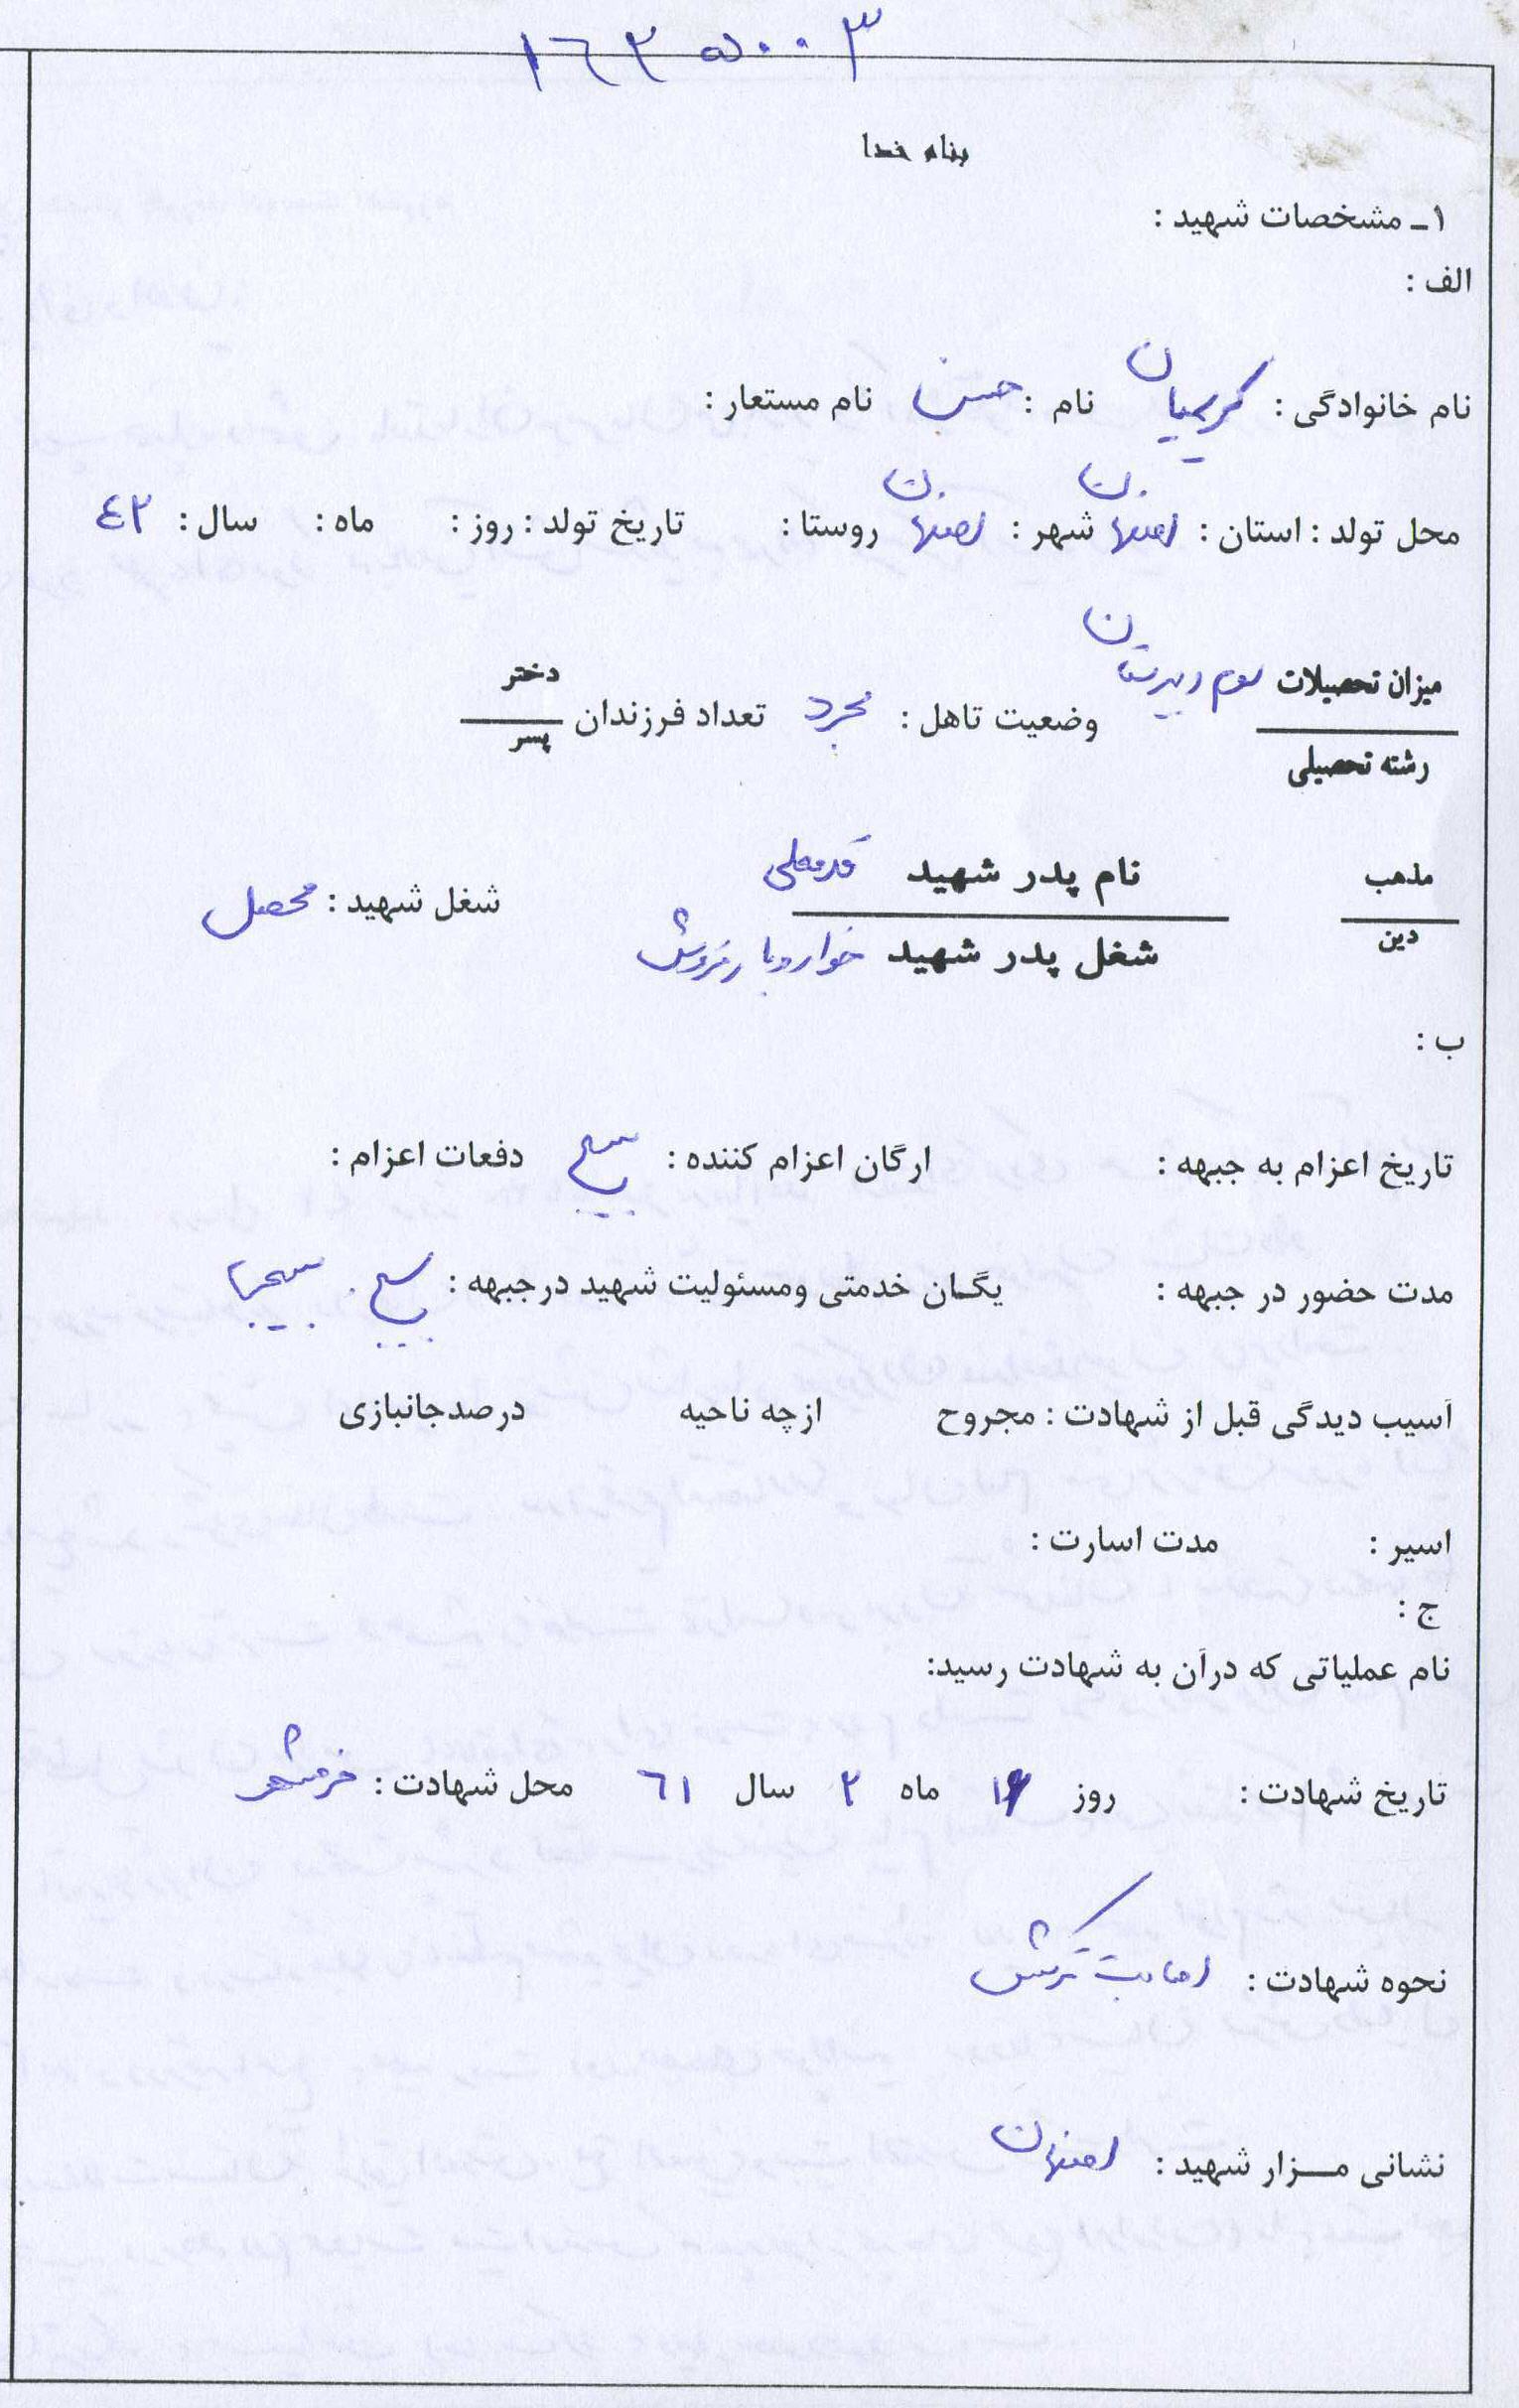 ۱۶۳۵۰۰۳
بنام خدا
۱ـ مشخصات شهید :
الف :
نام خانوادگی : کریمیان نام : حسن نام مستعار :
محل تولد : استان : اصفهان شهر : اصفهان روستا : تاریخ تولد : روز : ماه : سال : ٤۲
میزان تحصیلات سوم دبیرستان
رشته تحصیلی
وضعیت تاهل : مجرد تعداد فرزندان دختر
پسر
مذهب
دین
نام پدر شهید قدمعلی
شغل پدر شهید خواروبار فروش
شغل شهید : محصل
ب :
تاریخ اعزام به جبهه : ارگان اعزام کننده : بسیج دفعات اعزام :
مدت حضور در جبهه : یگان خدمتی ومسئولیت شهید درجبهه : بسیج . بسیجی
آسیب دیدگی قبل از شهادت : مجروح ازچه ناحیه درصدجانبازی
اسیر : مدت اسارت :
ج :
نام عملیاتی که درآن به شهادت رسید:
تاریخ شهادت : روز ماه ۲ سال ٦۱ محل شهادت : خرمشهر
نحوه شهادت : اصابت ترکش
نشانی مزار شهید : اصفهان